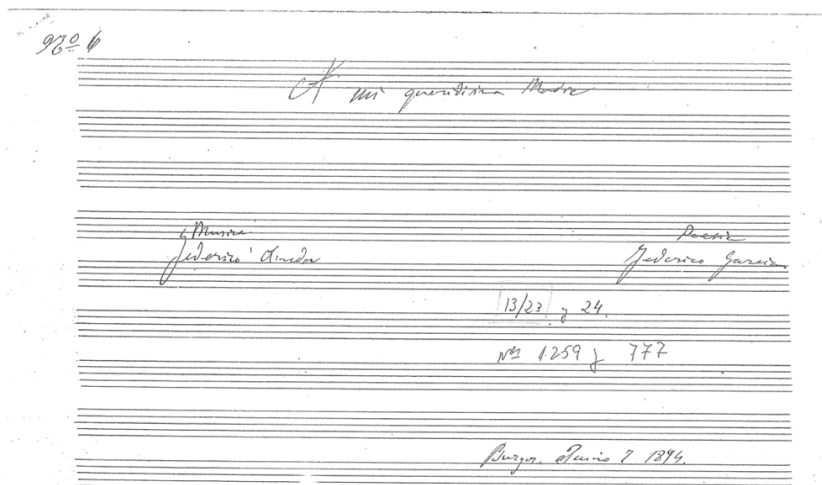 Nº 6
A mi queridisima Madre
Musica
Federico Amador
Poesia
Federico Garcia
13/23 y 24.
Nos 1.259 y 777
Burgos. Junio 2 1894.